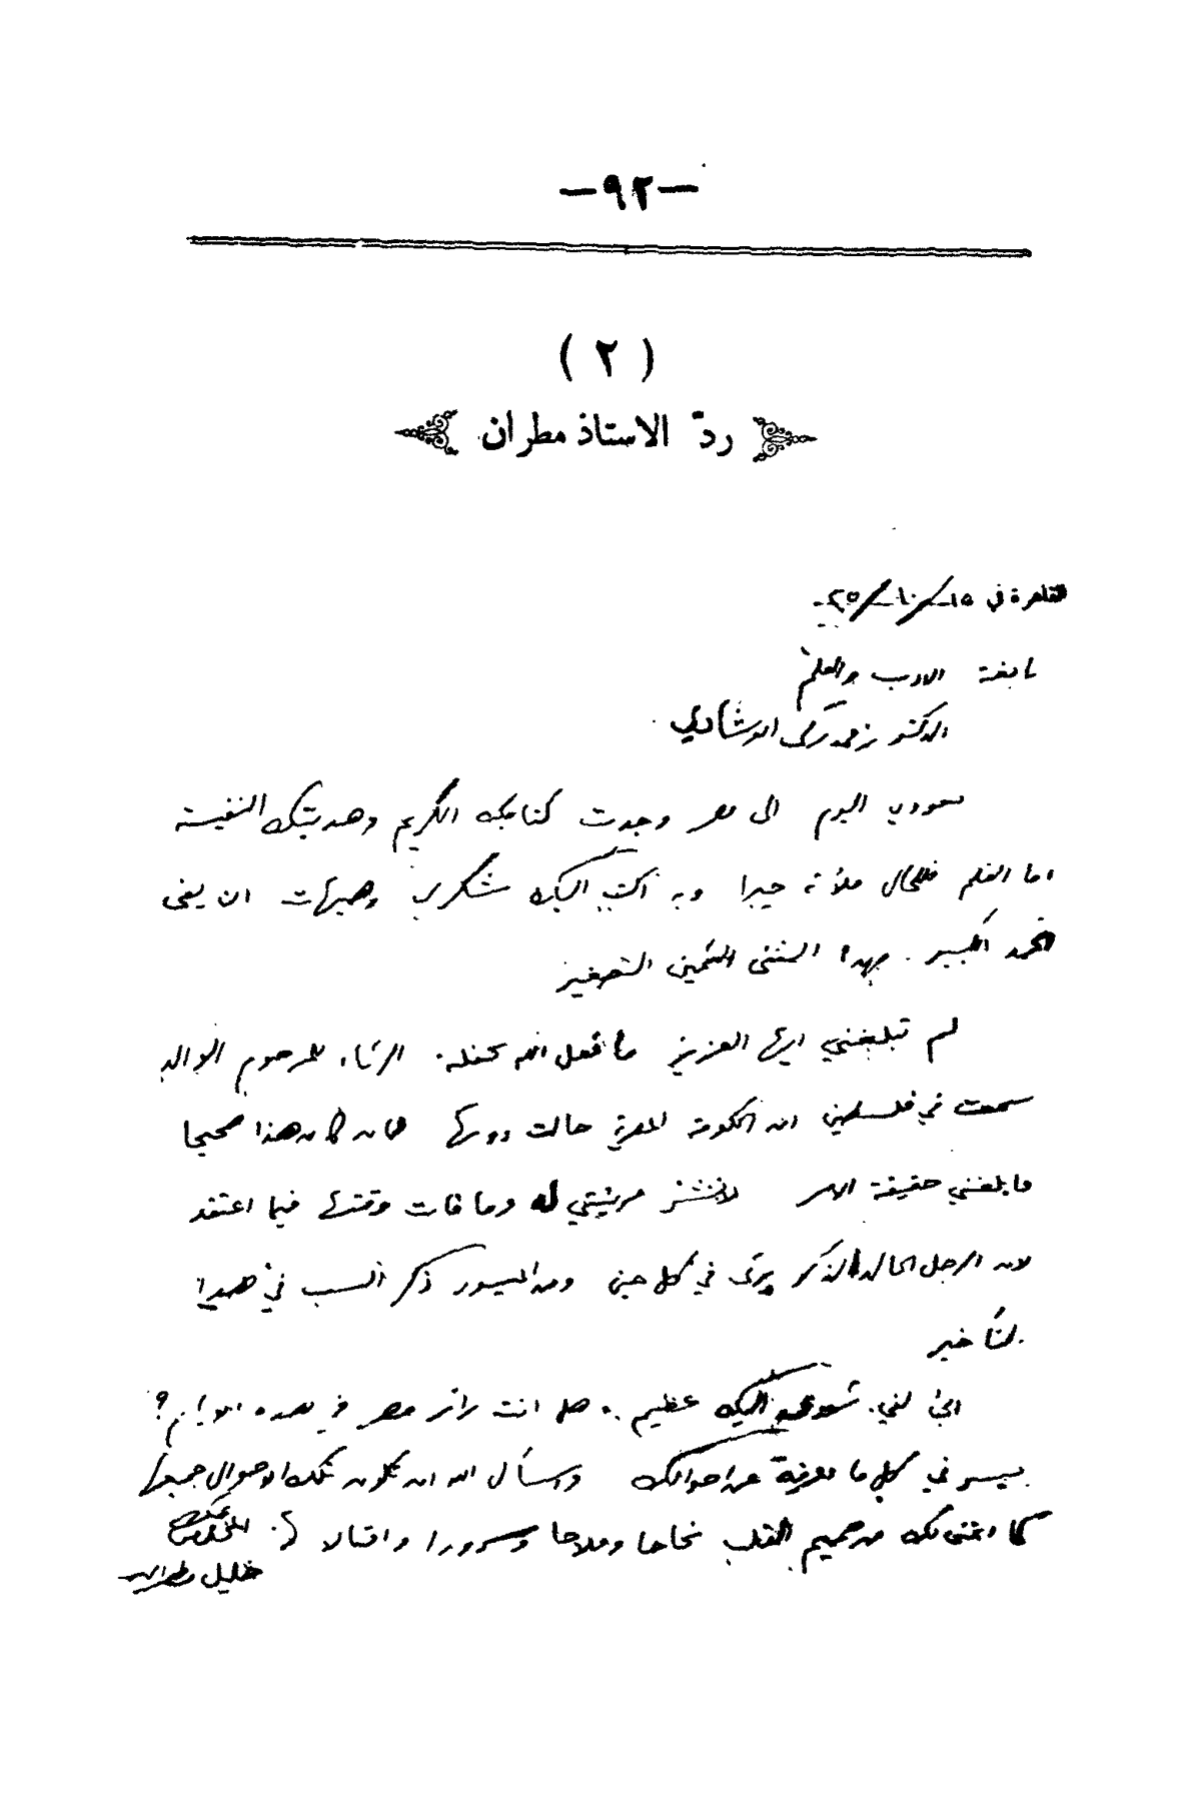 — ٩٢ —
( ٢ )
ردّ الاستاذ مطران
القاهرة في ١٥ - ١٠ - ٢٥
نابغة الادب والعلم
الدكتور احمد زكي ابو شادي
بعودي اليوم الى مصر وجدت كتابك الكريم وهديتك النفيسة
اما القلم فللحال ملأته حبرا وبه اكتب اليك شكري وهيهات ان يفى
الحمد الكبير بهذا الشىء الثمين الصغير
لم تبلغني ايها العزيز ما فعل الله بحفلة الرثاء للمرحوم الوالد
سمعت في فلسطين ان الحكومة المصرية حالت دونها فان كان هذا صحيحا
فابلغني حقيقة الامر لانشر مرثيتي له وما فات وقتها فيما اعتقد
لان الرجل الخالد الذكر يرثى في كل حين ومن الميسور ذكر السبب في هذا
التأخير
اني لفي شوق اليك عظيم . هل انت زائر مصر في هذه الايام ؟
يسرني كل ما معرفة من احوالك واسأل الله ان تكون تلك الاحوال جميعها
كما اتمنى لك من صميم القلب نجاحا وفلاحا وسرورا واقبالا
المخلص
خليل مطران